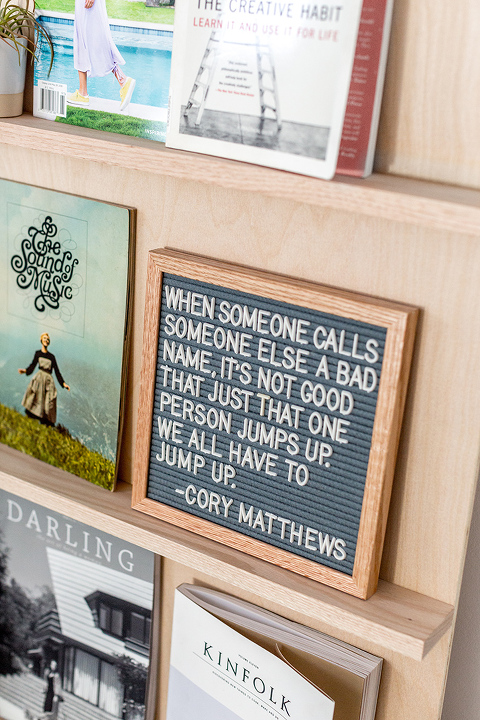 THE CREATIVE HABIT
LEARN IT AND USE IT FOR LIFE
The
Sound of
Music
WHEN SOMEONE CALLS
SOMEONE ELSE A BAD
NAME, IT'S NOT GOOD
THAT JUST THAT ONE
PERSON JUMPS UP.
WE ALL HAVE TO
JUMP UP.
-CORY MATTHEWS
DARLING
KINFOLK